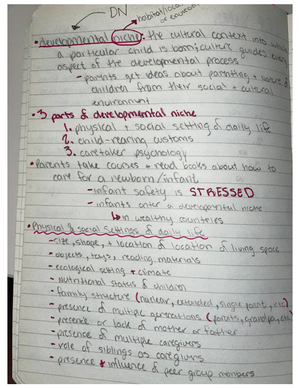 DN
habitat/loca
or environ
• developmental niche: the cultural context into which
a particular child is born; culture guides every
aspect of the developmental process
- parents get ideas about parenting + nature of
children from their social + cultural
environment
• 3 parts of developmental niche
1. physical + social setting of daily life
2. child-rearing customs
3. caretaker psychology
• Parents take courses + read books about how to
care for a newborn/infant
- infant safety is STRESSED
- infants enter a developmental niche
↳ in wealthy countries
• Physical & Social Settings of daily life
- size, shape, + location of location of living space
- objects, toys + reading materials
- ecological setting + climate
- nutritional status of children
- family structure (nuclear, extended, single parent, etc)
- presence of multiple generations (parents, grandpa, etc)
- presence or lack of mother or father
- presence of multiple caregivers
- role of siblings as caregivers
- presence + influence of peer group members